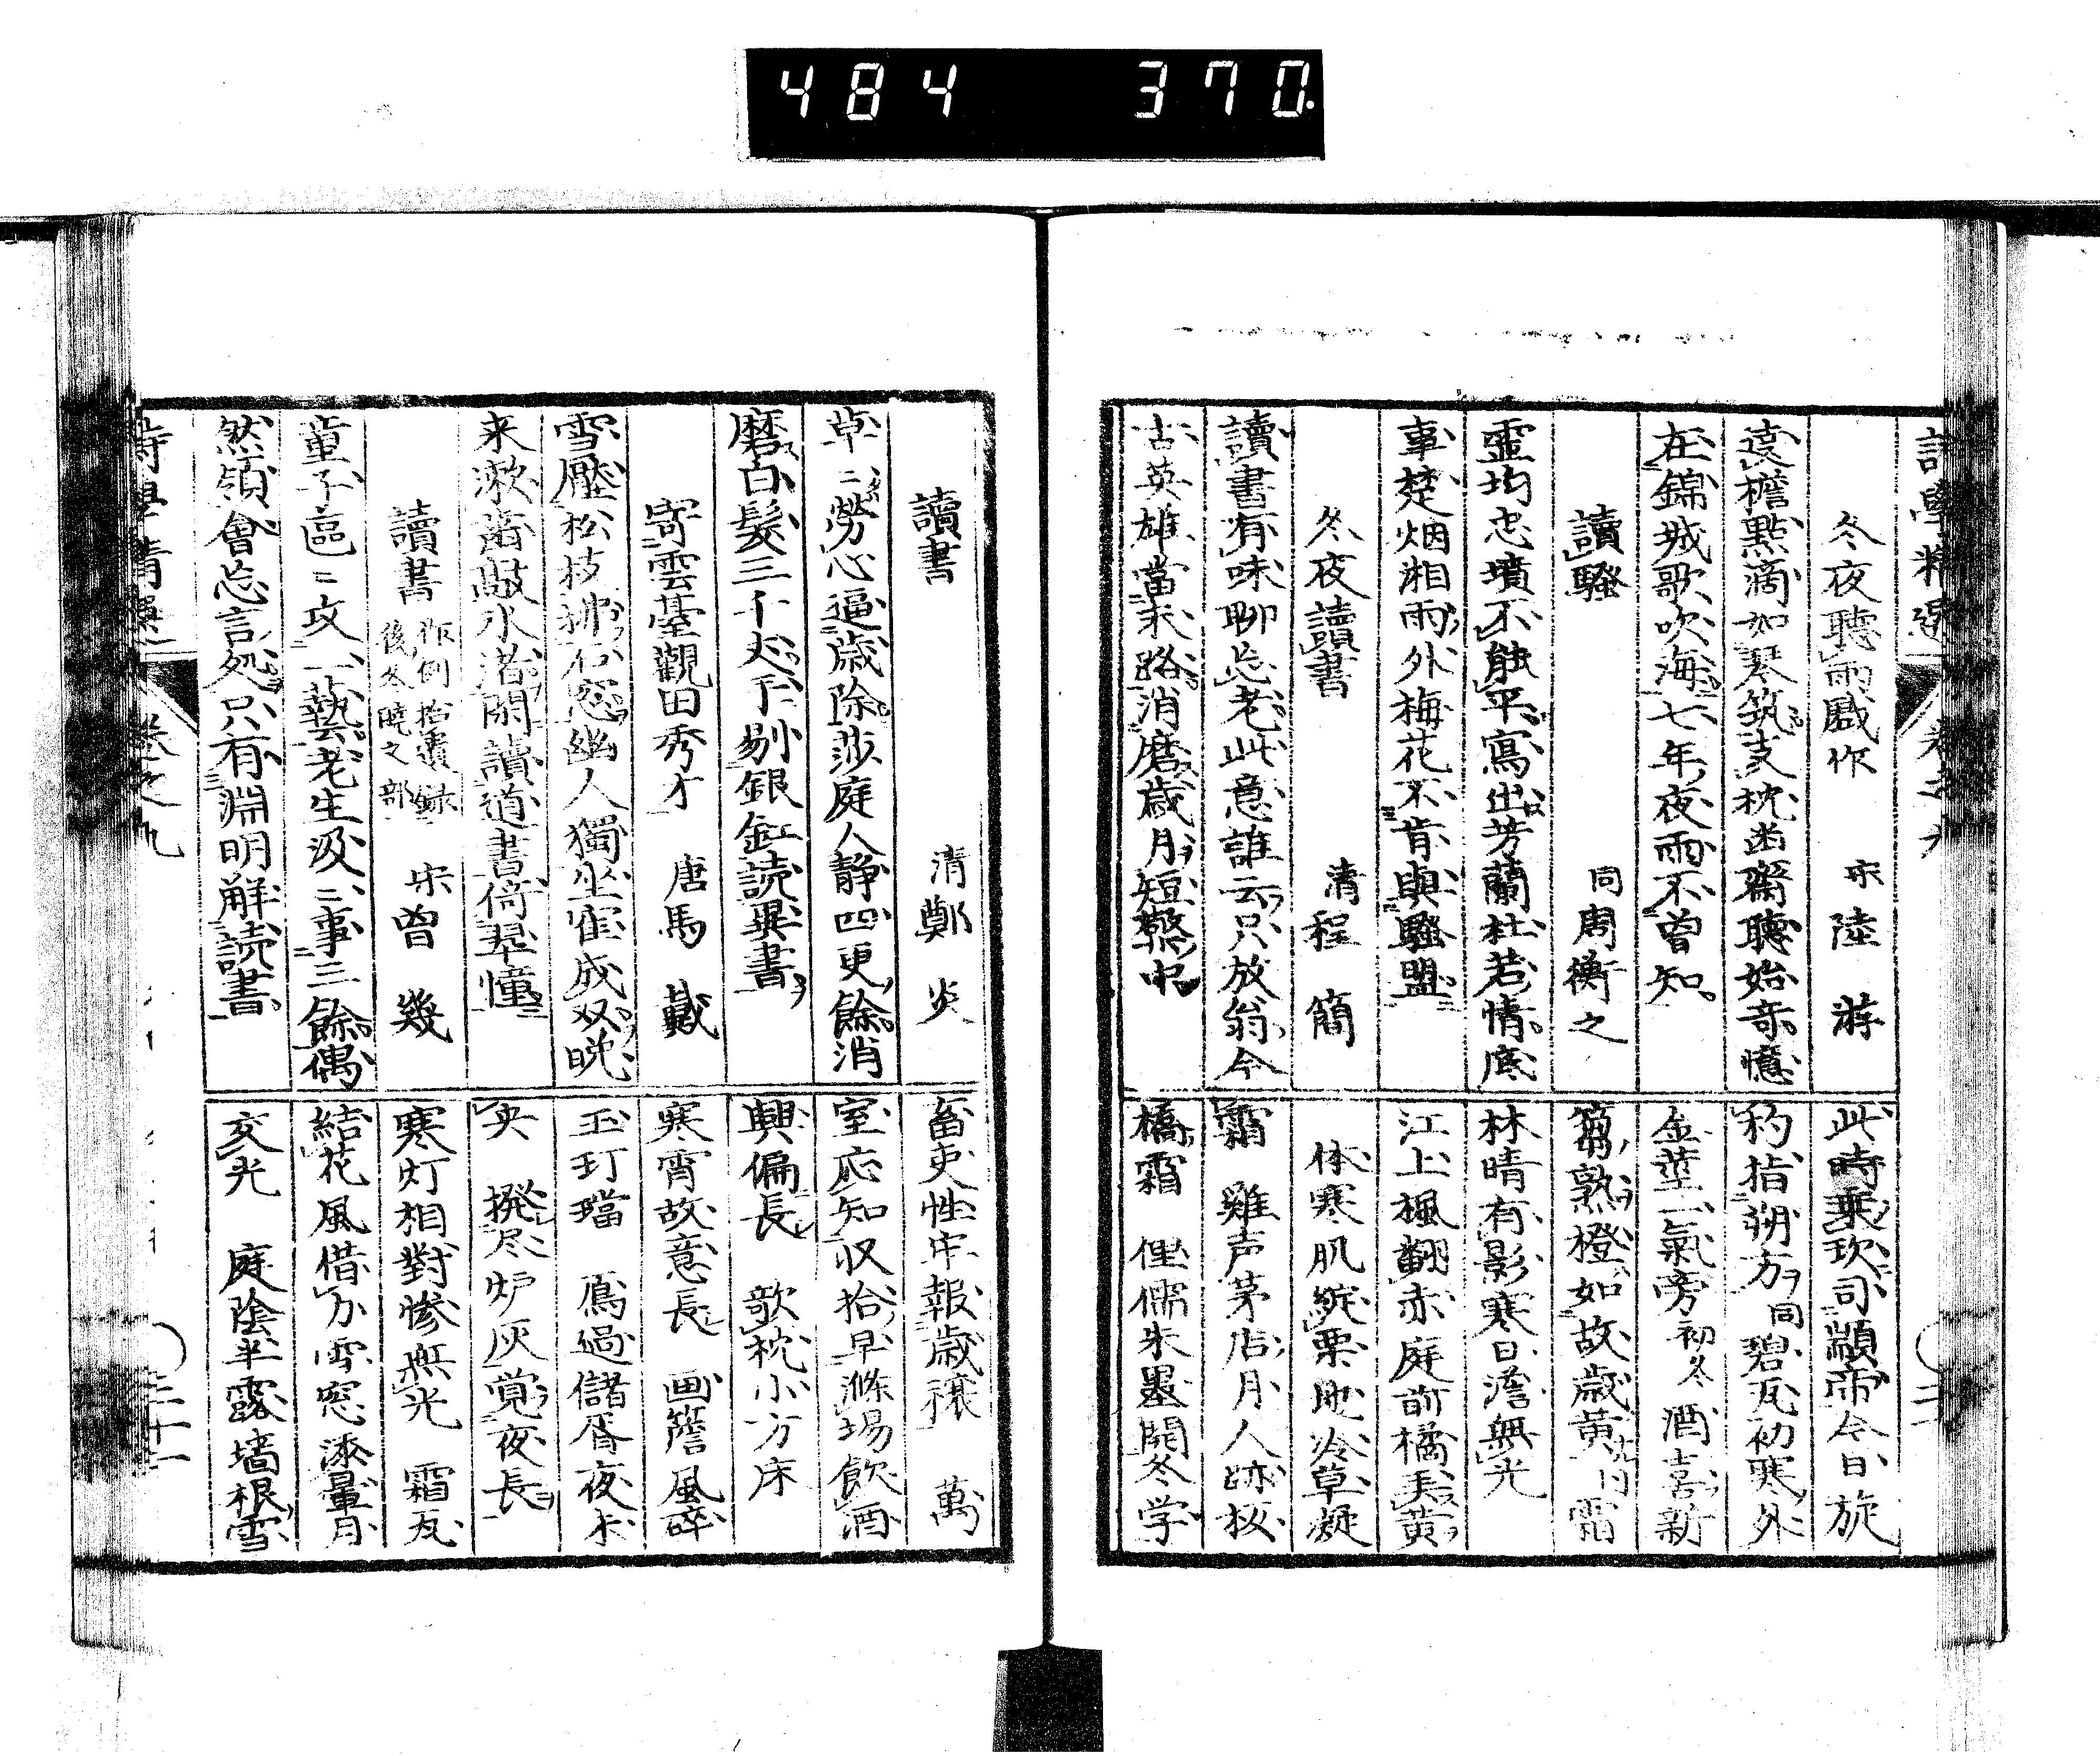 484 370.
冬夜聽雨戯作 宋陸游
遶檐點滴如琴筑支枕幽齋聽始奇憶
在錦城歌吹海七年夜雨不曽知
讀騒 同周衡之
霊均忠墳不能平寫出芳蘭杜若情底
事楚烟湘雨外梅花不肯與騒盟
冬夜讀書 清程簡
讀書有味聊忘老此意誰云只放翁今
古英雄當末路消磨歳月短檠中
此時乗坎司顓帝今日旋
杓指朔方同 碧瓦初寒外
金莖一氣旁初冬 酒喜新
篘熟橙如故歳黄 霜
林晴有影寒日澹無光
江上楓翻赤庭前橘美黄
体寒肌綻粟地冷草凝
霜 雞声茅店月人跡板
橋霜 俚儒朱墨開冬学
讀書 清鄭炎
草〻勞心逼歳除莎庭人静四更餘消
磨白髮三千丈下剔銀缸読異書
寄雲臺觀田秀才 唐馬戴
雪壓松枝拂石窓幽人獨坐寉成双晩
来漱齒敲氷渚閑讀道書倚翠幢
讀書 作例拾遺録
後冬曉之部 宋曽幾
童子區〻攻一藝老生汲〻事三餘偶
然領會忘言処只有淵明解読書
畜吏性牢報歳穰 萬
室応知収拾早滌場飲酒
興偏長 欹枕小方床
寒宵故意長 画簷風碎
玉玎璫 鳫過儲胥夜未
央 撥尽炉灰覚夜長
寒灯相對惨無光 霜瓦
結花風借力雪窓漆暈月
交光 庭陰半露墻根雪
卷之九
三十一